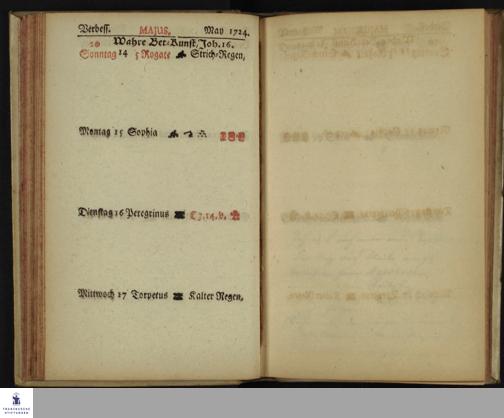 Verbess. MAJUS. May 1724.
20 Wahre Bet-Kunst, Joh. 16.
Sonntag 14 5 Rogate Strich-Regen,
Montag 15 Sophia
Dienstag 16 Peregrinus
Mittwoch 17 Torpetus Kalter Regen,
FRANCKESCHE
STIFTUNGEN